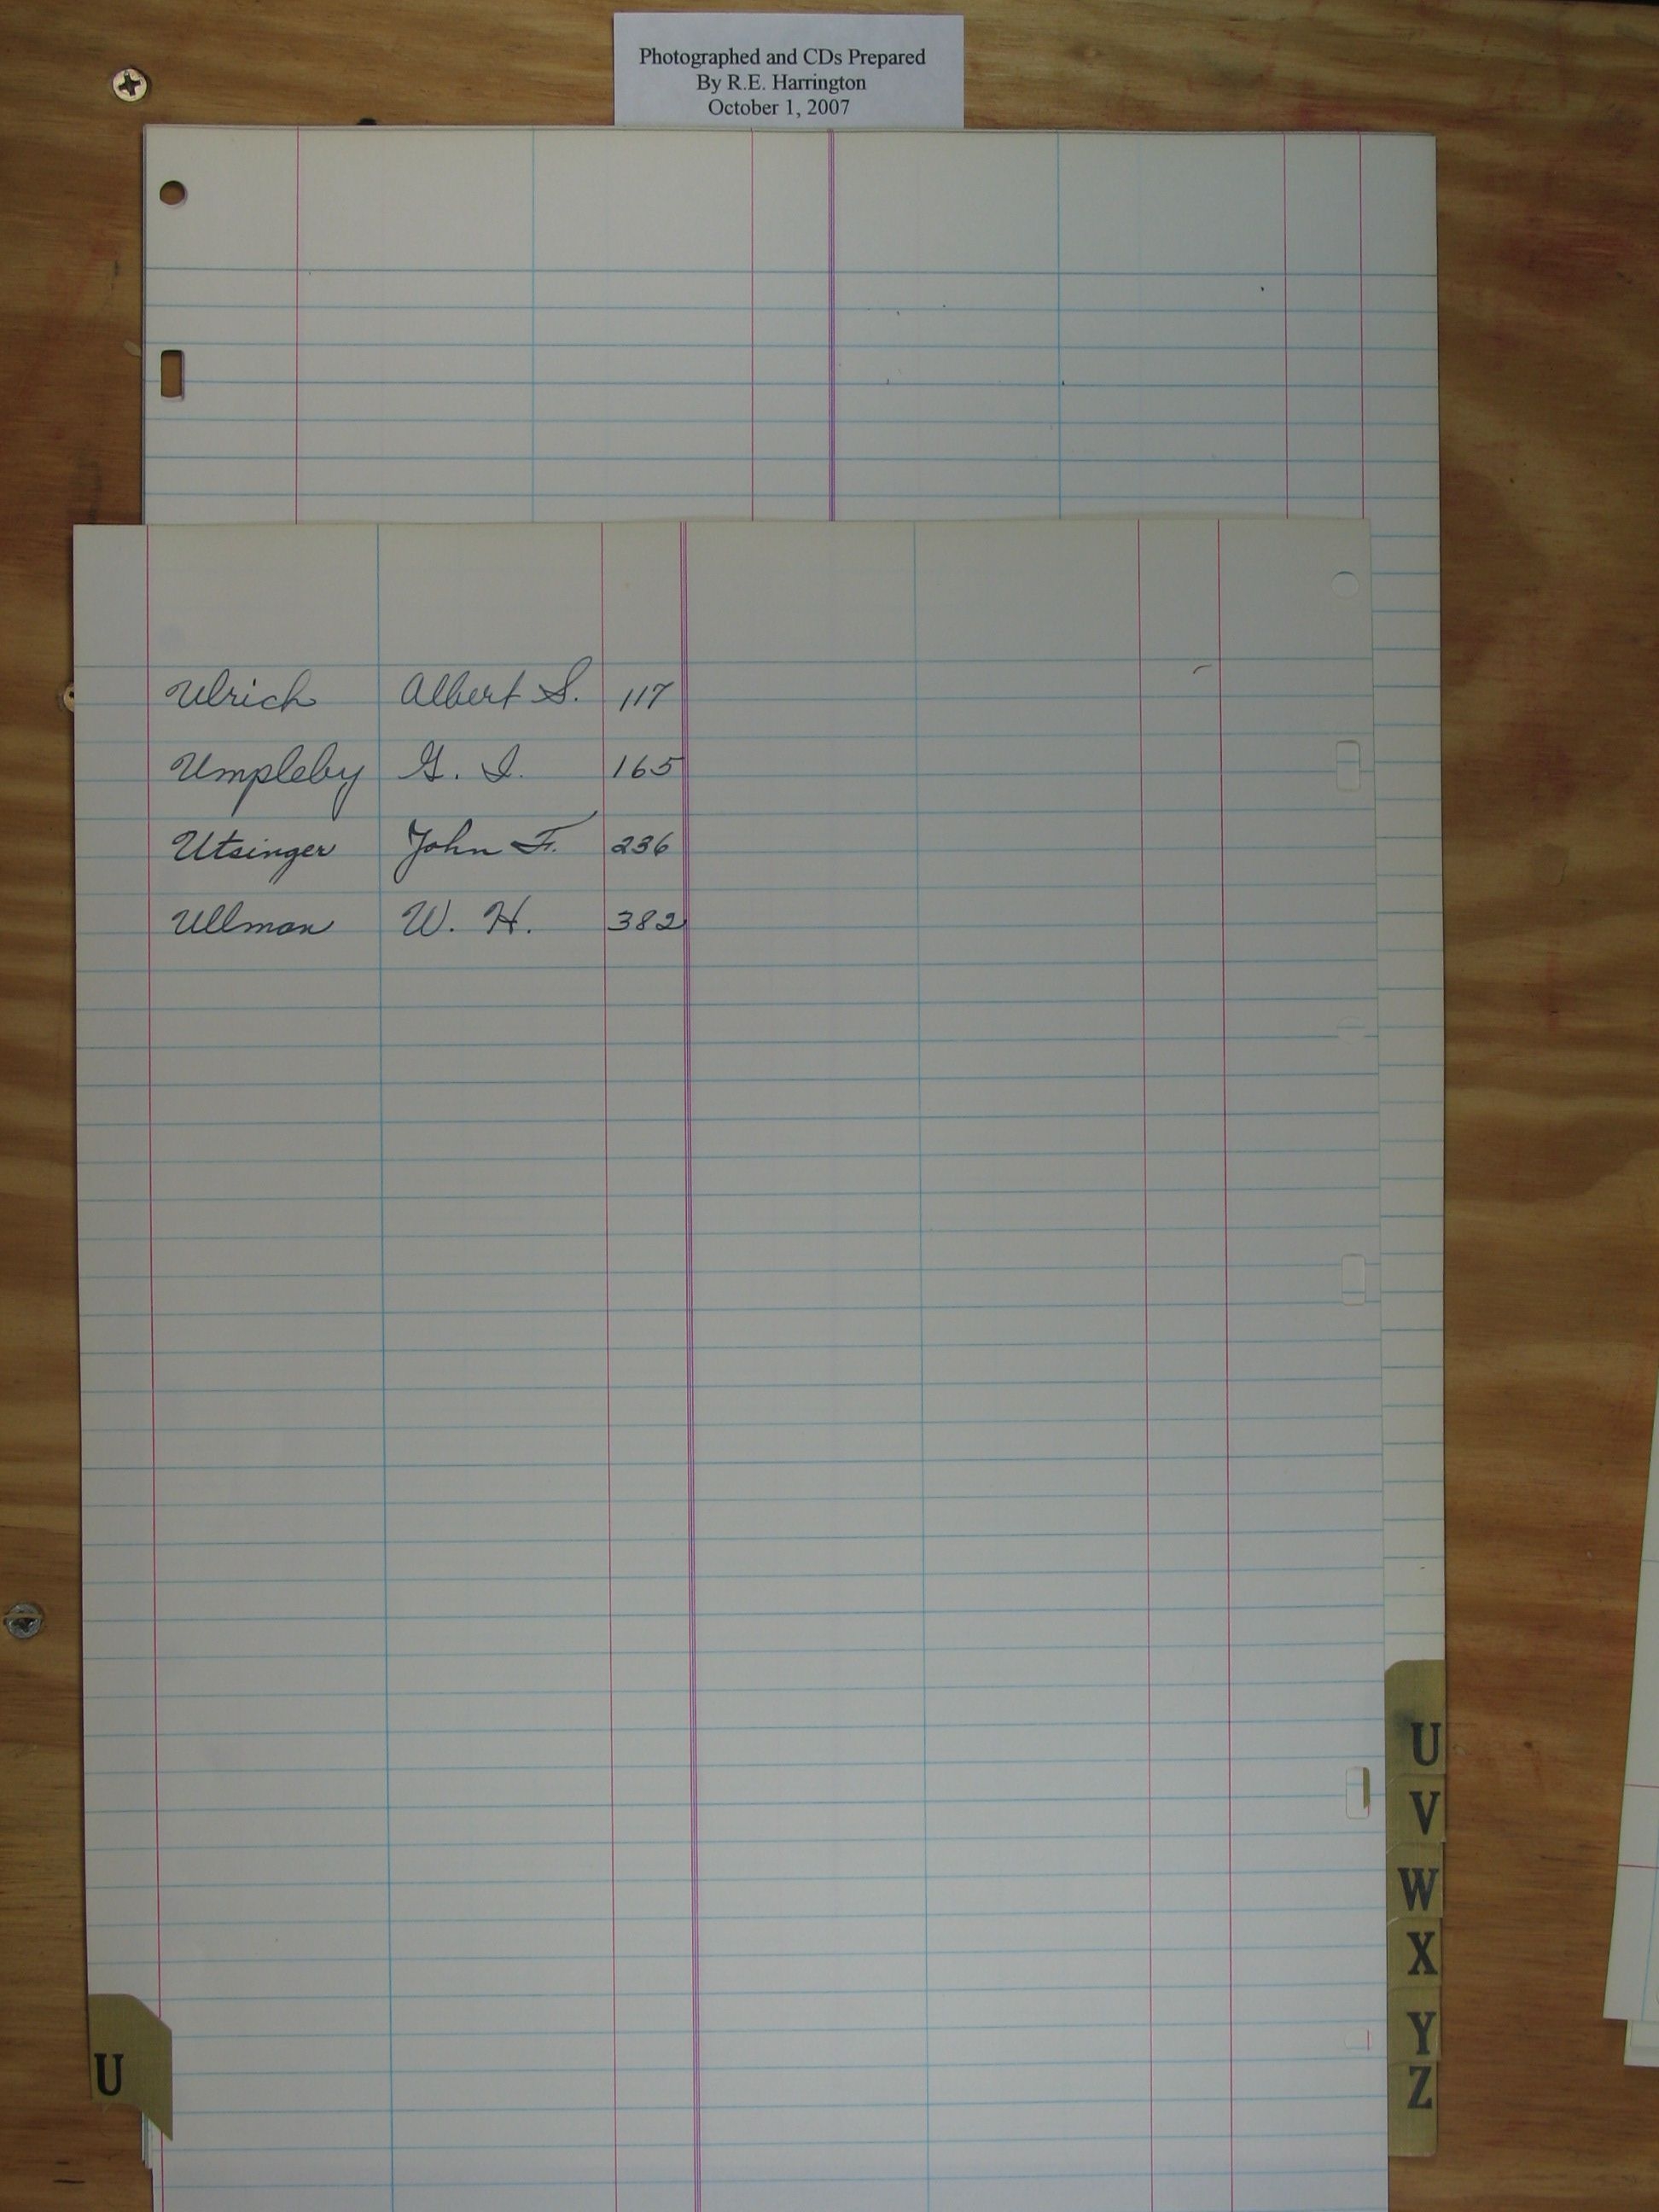 Photographed and CDs Prepared
By R.E. Harrington
October 1, 2007
Ulrich Albert S. 117
Umpleby G. I. 165
Utsinger John F. 236
Ullman W. H. 382
U
V
W
X
Y
Z
U